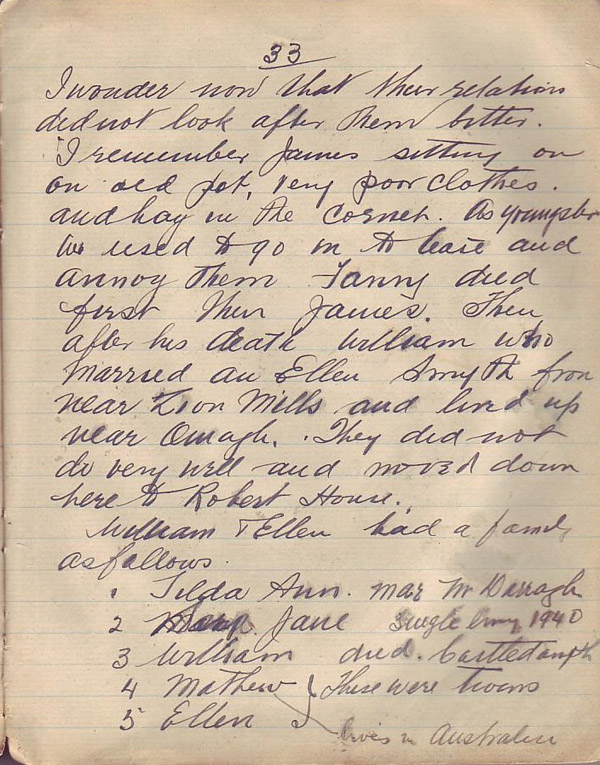 33
I wonder now that their relations
did not look after them better.
I remember James sitting on
an old pot, very poor clothes.
and hay in the corner. As youngsters
we used to go in to tease and
annoy them Fanny died
first then James. Then
after his death William who
married an Ellen Smyth from
near Sion Mills and lived up
near Omagh. They did not
do very well and moved down
here to Robert House.
William & Ellen had a family
as follows.
1 Tilda Ann. mar Mc Darragh
2 Mary Jane Single living 1940
3 William died.
4 Mathew } These were twins
5 Ellen
lives in Australia